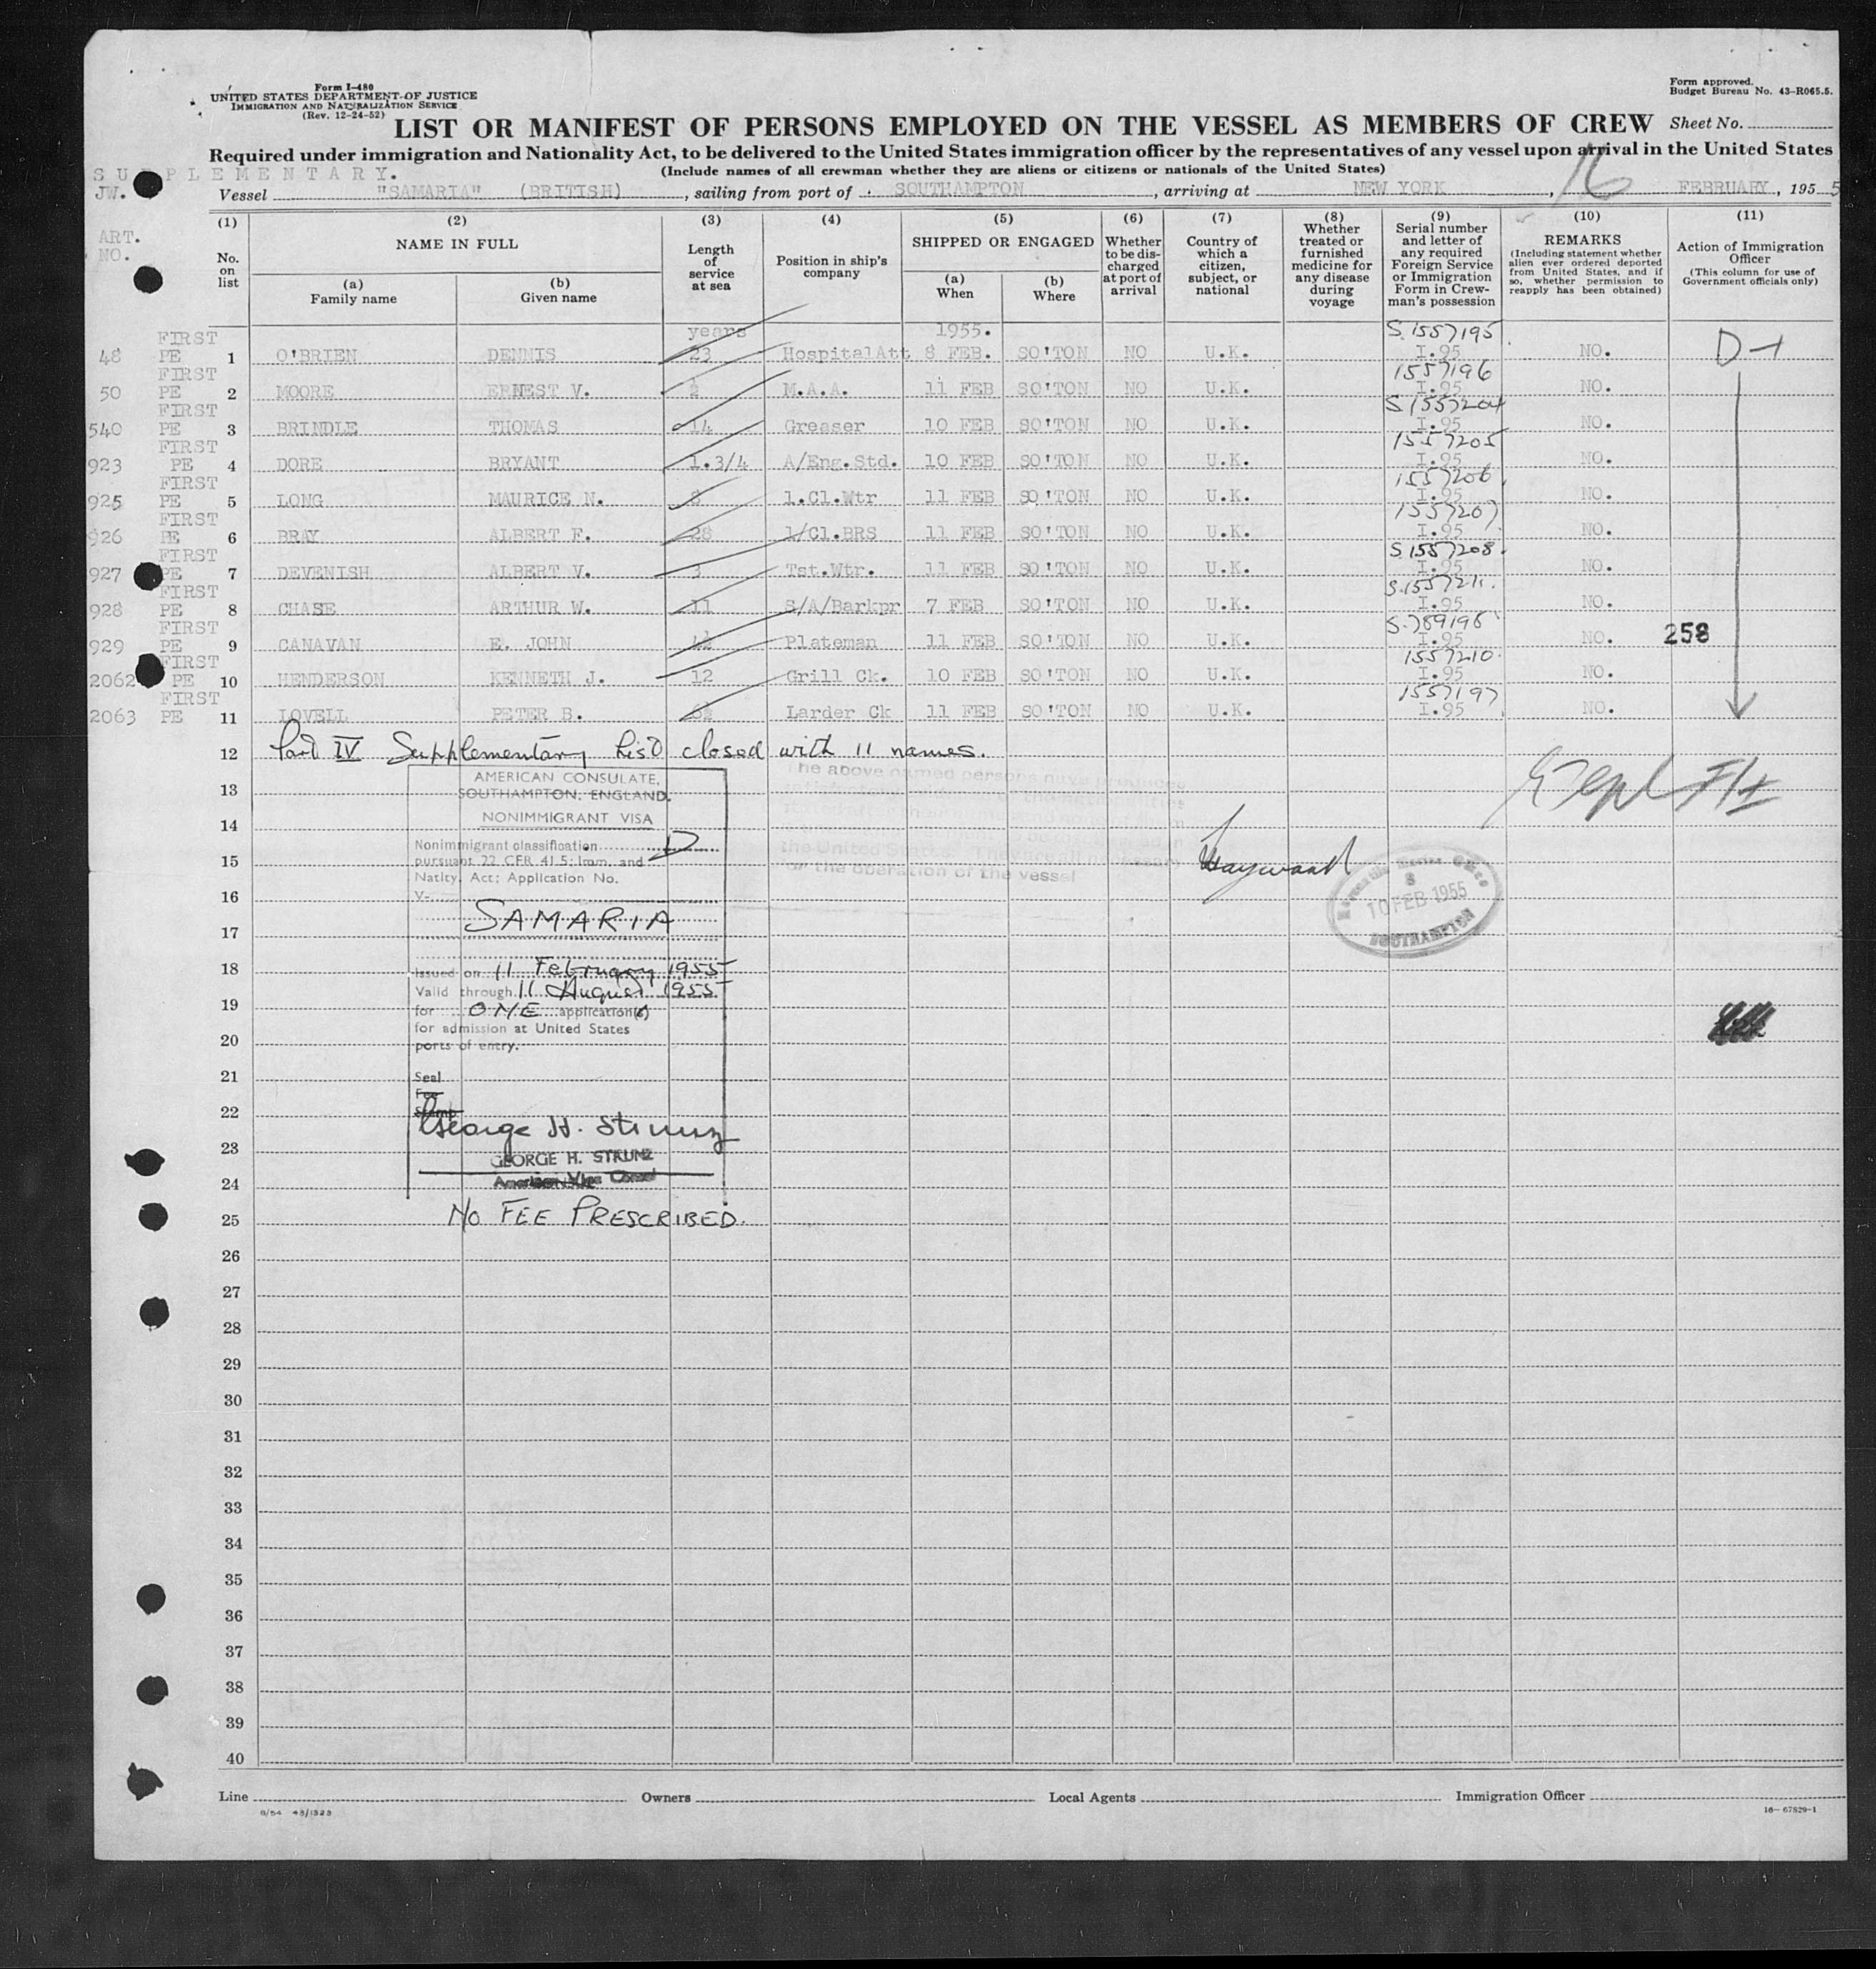 Form I-480
UNITED STATES DEPARTMENT OF JUSTICE
IMMIGRATION AND NATURALIZATION SERVICE
(Rev. 12-24-52)
Form approved.
Budget Bureau No. 43-R065.5.
LIST OR MANIFEST OF PERSONS EMPLOYED ON THE VESSEL AS MEMBERS OF CREW Sheet No.
Required under immigration and Nationality Act, to be delivered to the United States immigration officer by the representatives of any vessel upon arrival in the United States
SUPPLEMENTARY.
(Include names of all crewman whether they are aliens or citizens or nationals of the United States)
JW.
Vessel "SAMARIA" (BRITISH), sailing from port of SOUTHAMPTON, arriving at NEW YORK, 16 FEBRUARY, 1955
ART. NO.
(1) No. on list
(2) NAME IN FULL
(a) Family name
(b) Given name
(3) Length of service at sea
(4) Position in ship's company
(5) SHIPPED OR ENGAGED
(a) When
(b) Where
(6) Whether to be discharged at port of arrival
(7) Country of which a citizen, subject, or national
(8) Whether treated or furnished medicine for any disease during voyage
(9) Serial number and letter of any required Foreign Service or Immigration Form in Crewman's possession
(10) REMARKS
(Including statement whether alien ever ordered deported from United States, and if so, whether permission to reapply has been obtained)
(11) Action of Immigration Officer
(This column for use of Government officials only)
years 1955.
48 FIRST PE 1 O'BRIEN DENNIS 23 HospitalAtt 8 FEB. SO'TON NO U.K. S.1557195 I.95 NO. D-1
50 FIRST PE 2 MOORE ERNEST V. M.A.A. 11 FEB SO'TON NO U.K. 1557196 I.95 NO.
540 FIRST PE 3 BRINDLE THOMAS 14 Greaser 10 FEB SO'TON NO U.K. S.1557204 I.95 NO.
923 FIRST PE 4 DORE BRYANT 1.3/4 A/Eng.Std. 10 FEB SO'TON NO U.K. 1557205 I.95 NO.
925 FIRST PE 5 LONG MAURICE N. 8 1.Cl.Wtr 11 FEB SO'TON NO U.K. 1557206 I.95 NO.
926 FIRST PE 6 BRAY ALBERT F. 28 1/Cl.BRS 11 FEB SO'TON NO U.K. 1557207 I.95 NO.
927 FIRST PE 7 DEVENISH ALBERT V. 3 Tst.Wtr. 11 FEB SO'TON NO U.K. S.1557208. I.95 NO.
928 FIRST PE 8 CHASE ARTHUR W. 11 S/A/Barkpr 7 FEB SO'TON NO U.K. S.1557211. I.95 NO.
929 FIRST PE 9 CANAVAN E. JOHN 4½ Plateman 11 FEB SO'TON NO U.K. S.789196 I.95 NO. 258
2062 FIRST PE 10 HENDERSON KENNETH J. 12 Grill Ck. 10 FEB SO'TON NO U.K. 1557210. I.95 NO.
2063 FIRST PE 11 LOVELL PETER B. 6½ Larder Ck 11 FEB SO'TON NO U.K. 1557197 I.95 NO.
12 Part IV Supplementary List closed with 11 names.
The above named persons have produced
the United States. They are all necessary
for the operation of the vessel
Haywood
10 FEB 1955
SOUTHAMPTON
AMERICAN CONSULATE,
SOUTHAMPTON, ENGLAND.
NONIMMIGRANT VISA
Nonimmigrant classification D
pursuant 22 CFR 41.5; Imm. and
Natlty. Act; Application No.
V-
SAMARIA
Issued on 11 February 1955
Valid through 11 August 1955
for ONE application(s)
for admission at United States
ports of entry.
Seal
Fee
Stamp
George H. Strunz
GEORGE H. STRUNZ
American Vice Consul
NO FEE PRESCRIBED.
13
14
15
16
17
18
19
20
21
22
23
24
25
26
27
28
29
30
31
32
33
34
35
36
37
38
39
40
Line Owners Local Agents Immigration Officer
8/54 48/1323
16—67829-1